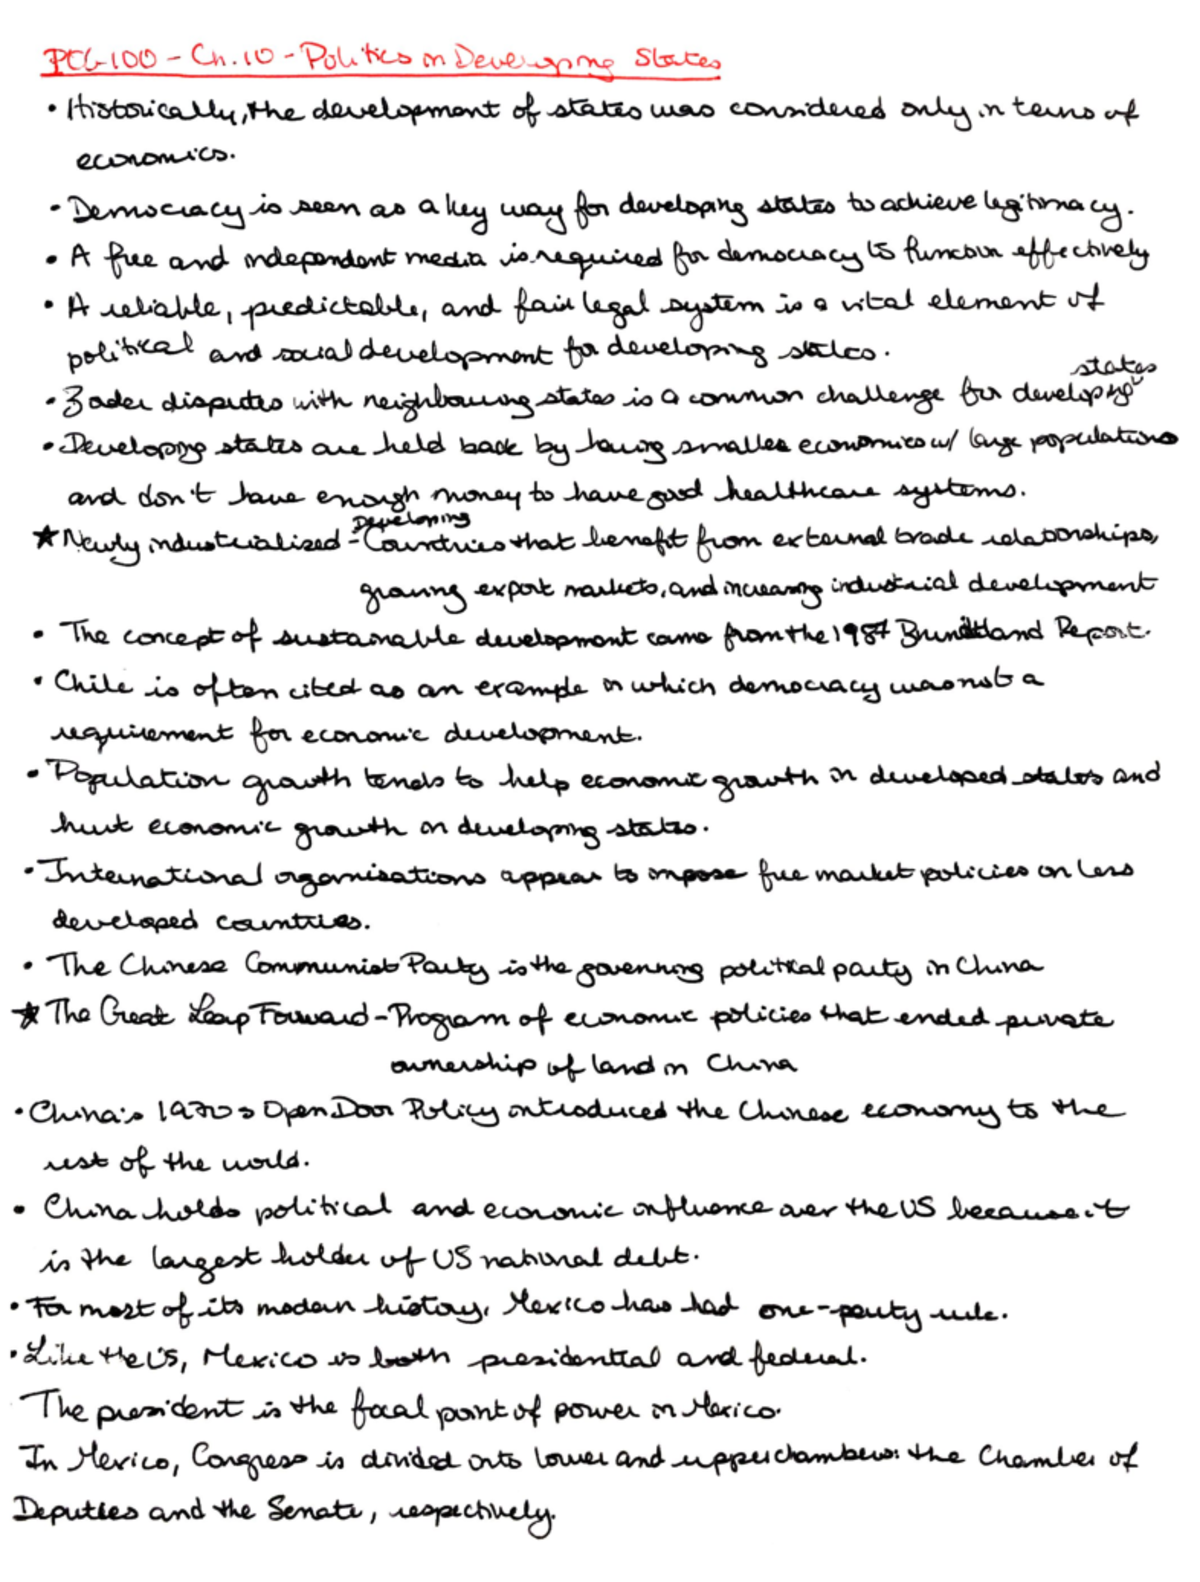 POG100 - Ch.10 - Politics in Developing States
• Historically, the development of states was considered only in terms of
economics.
• Democracy is seen as a key way for developing states to achieve legitimacy.
• A free and independent media is required for democracy to function effectively
• A reliable, predictable, and fair legal system is a vital element of
political and social development for developing states.
states
• Border disputes with neighbouring states is a common challenge for developing
• Developing states are held back by having smaller economies w/ large populations
and don't have enough money to have good healthcare systems.
Developing
★ Newly industrialized - Countries that benefit from external trade relationships,
growing export markets, and increasing industrial development
• The concept of sustainable development came from the 1987 Brundtland Report.
• Chile is often cited as an example in which democracy was not a
requirement for economic development.
• Population growth tends to help economic growth in developed states and
hurt economic growth in developing states.
• International organisations appear to impose free market policies on less
developed countries.
• The Chinese Communist Party is the governing political party in China
★ The Great Leap Forward - Program of economic policies that ended private
ownership of land in China
• China's 1970s Open Door Policy introduced the Chinese economy to the
rest of the world.
• China holds political and economic influence over the US because it
is the largest holder of US national debt.
• For most of its modern history, Mexico has had one-party rule.
• Like the US, Mexico is both presidential and federal.
The president is the focal point of power in Mexico.
In Mexico, Congress is divided into lower and upper chambers: the Chamber of
Deputies and the Senate, respectively.